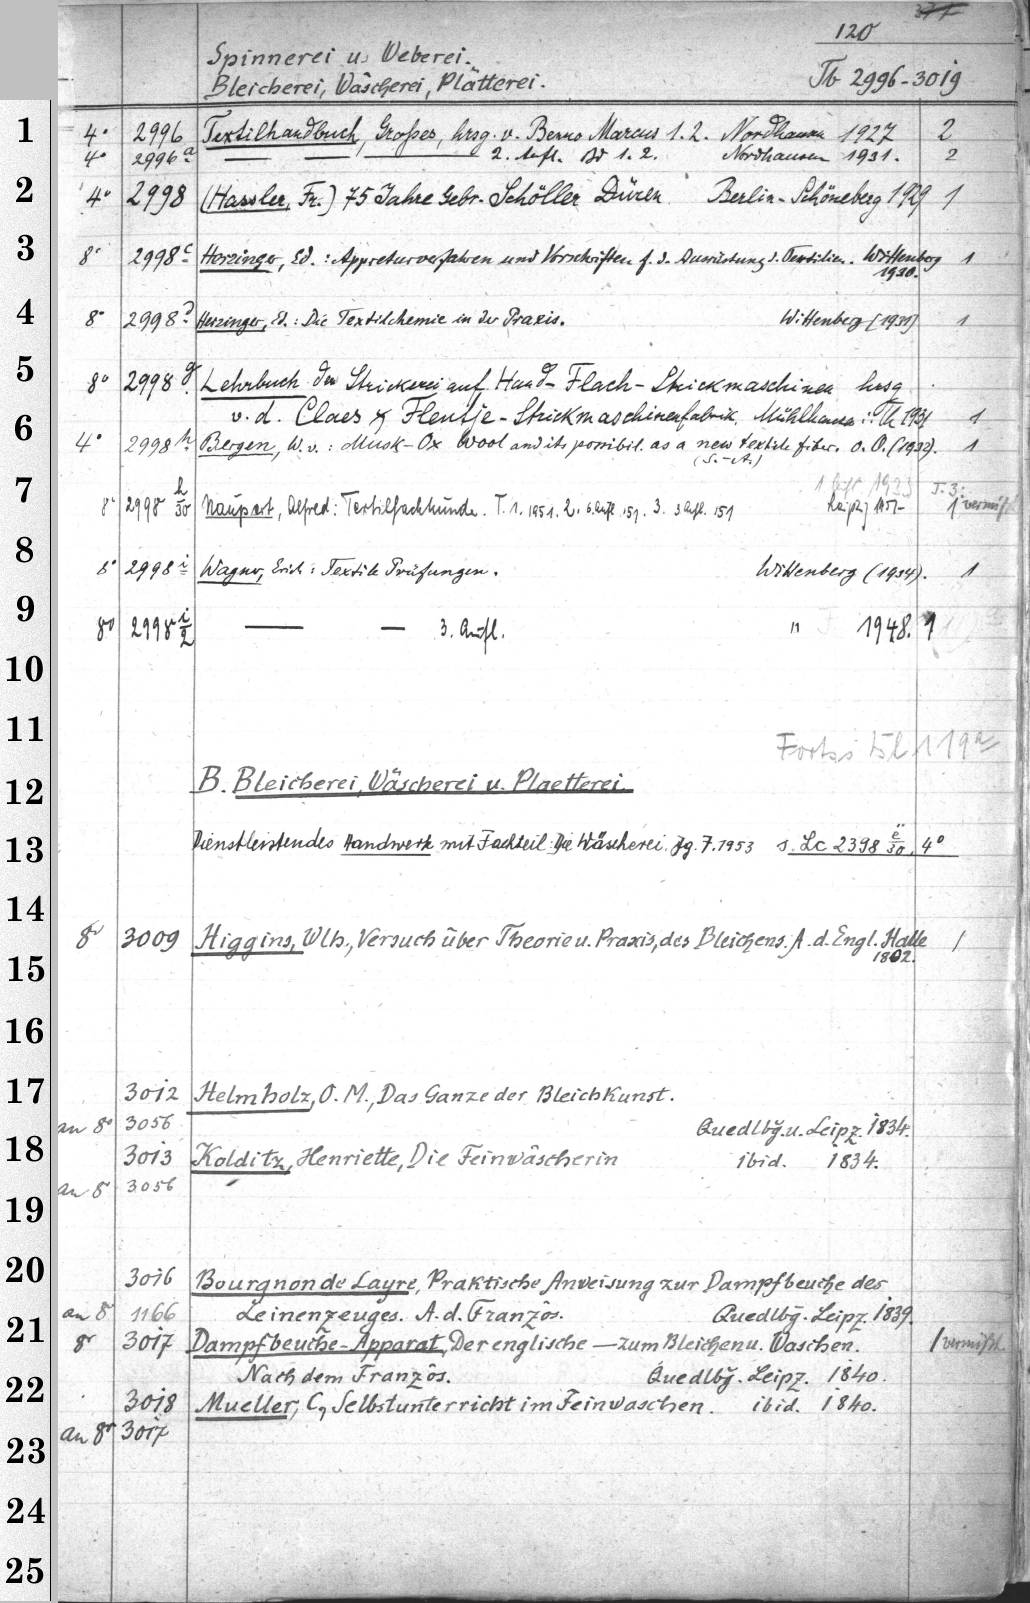 120
Spinnerei u. Weberei.
Bleicherei, Wäscherei, Plätterei. Tb 2996-3019
1 4° 2996 Textilhandbuch, Großes, hrsg. v. Benno Marcus 1. 2. Nordhausen 1927 2
4° 2996a — — — 2. Aufl. Bd 1. 2. Nordhausen 1931. 2
2 4° 2998 (Hassler, Fr.) 75 Jahre Gebr. Schöller Düren Berlin-Schöneberg 1929 1
3 8° 2998c Herzinger, Ed.: Appreturverfahren und Vorschriften f. d. Ausrüstung d. Textilien. Wittenberg 1
1930.
4 8° 2998? Herzinger, E.: Die Textilchemie in der Praxis. Wittenberg (1931) 1
5 8° 2998g Lehrbuch der Strickerei auf Hand-Flach-Strickmaschinen hrsg.
v. d. Claes & Flentje-Strickmaschinenfabrik, Mühlhausen i. Th. 1931 1
6 4° 2998h Bergen, W. v.: Musk-Ox Wool and its possibil. as a new textile fiber. o. O. (1932). 1
(S.-A.)
7 8° 2998 h/30 Naupert, Alfred: Textilfachkunde. T. 1. 1951. 2. 6. Aufl. 151. 3. 3 Aufl. 151 Leipzig 1951- T. 3: 1 vermißt
8 8° 2998i Wagner, Erich: Textile Prüfungen. Wittenberg (1934). 1
9 8° 2998 i/2 — — 3. Aufl. " 1948. 1
10
11 Forts. Bl 119a
12 B. Bleicherei, Wäscherei u. Plaetterei.
13 Dienstleistendes Handwerk mit Fachteil: Die Wäscherei. Jg. 7. 1953 s. Lc 2398 ë/30, 4°
14
8° 3009 Higgins, Wlh., Versuch über Theorie u. Praxis, des Bleichens. A. d. Engl. Halle 1
15 1802.
16
17 3012 Helmholz, O. M., Das Ganze der Bleichkunst.
an 8° 3056 Quedlbg. u. Leipz. 1834.
18 3013 Kolditz, Henriette, Die Feinwäscherin ibid. 1834.
an 8° 3056
19
20 3016 Bourgnon de Layre, Praktische Anweisung zur Dampfbeuche des
an 8° 1166 Leinenzeuges. A. d. Französ. Quedlbg. Leipz. 1839.
21 8° 3017 Dampfbeuche-Apparat, Der englische — zum Bleichen u. Waschen. 1 vermißt
22 Nach dem Französ. Quedlbg. Leipz. 1840.
3018 Mueller, C, Selbstunterricht im Feinwaschen. ibid. 1840.
23 an 8° 3017
24
25